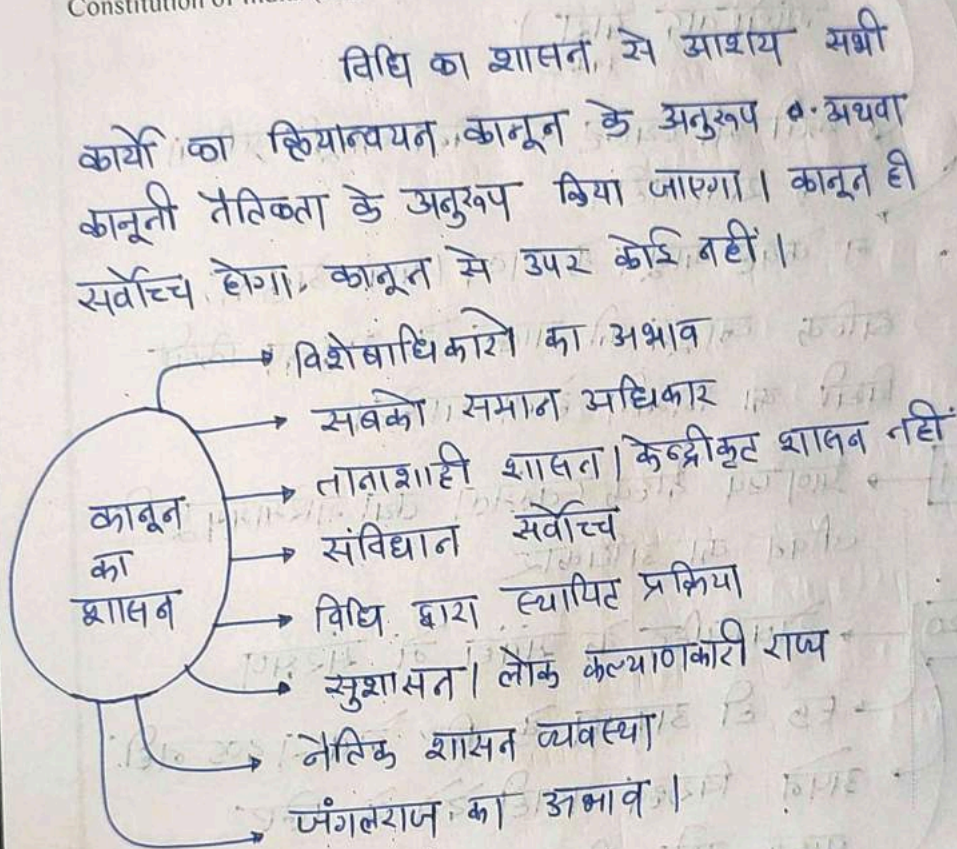 Constitution of
विधि का शासन, से आशय सभी
कार्यो का क्रियान्वयन कानून के अनुरूप अथवा
कानूनी नैतिकता के अनुरूप किया जाएगा। कानून ही
सर्वोच्च होगा, कानून से उपर कोई नहीं।
विशेषाधिकारो का अभाव
सबको समान अधिकार
तानाशाही शासन/केन्द्रीकृट शासन नहीं
कानून
का
शासन
संविधान सर्वोच्च
विधि द्वारा स्थापिट प्रक्रिया
सुशासन/लोक कल्याणकारी राज्य
नैतिक शासन व्यवस्था
जंगलराज का अभाव।